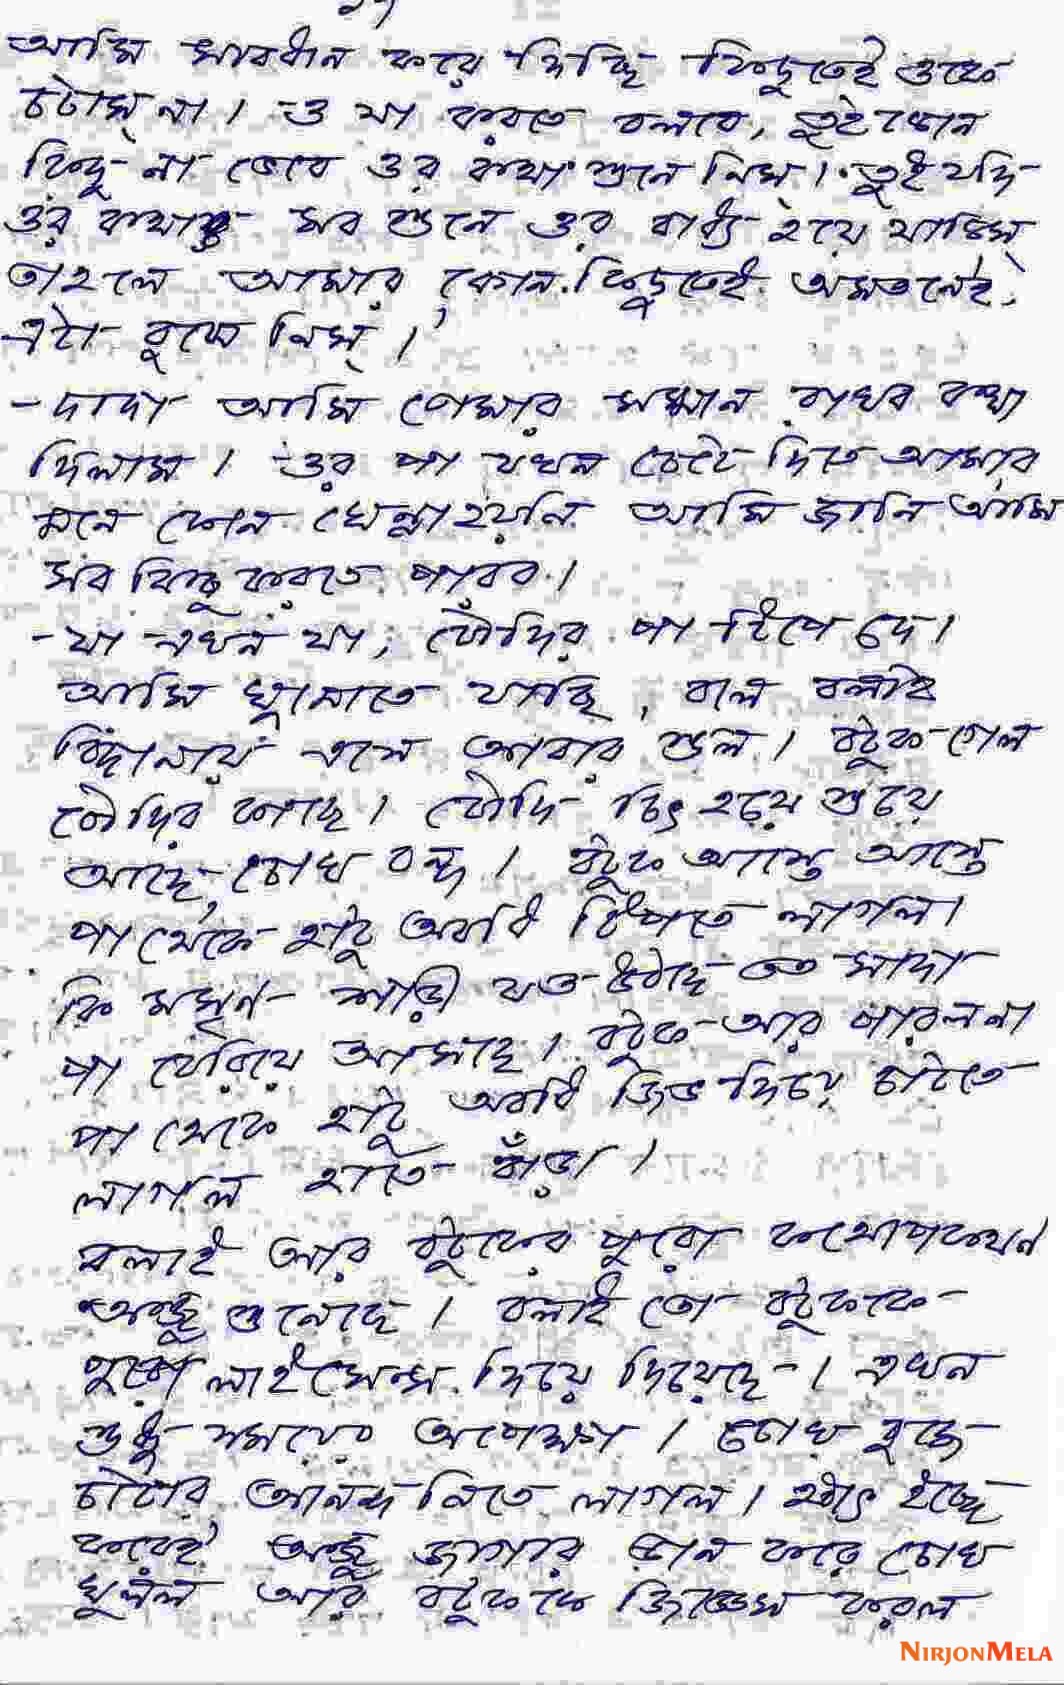 ২৭
আমি সাবধান করে দিচ্ছি কিছুতেই ওকে
চটাস্ না। ও যা করতে বলবে, তুই কোন
কিছু না ভেবে ওর কথা শুনে নিস। তুই যদি
ওর কথা সব শুনে ওর বাধ্য হয়ে থাকিস্
তাহলে আমার কোন কিছুতেই অমত নেই,
এটা বুঝে নিস্।
- দাদা আমি তোমার সম্মান রাখব কথা
দিলাম। ওর পা যখন চেটে দিতে আমার
মনে কোন ঘেন্না হয়নি আমি জানি আমি
সব কিছু করতে পারব।
- যা এখন যা, বৌদির পা টিপে দে।
আমি ঘুমোতে যাচ্ছি, বলে বলাই
বিছানায় এসে আবার শুল। বটুক গেল
বৌদির কাছে। বৌদি চিৎ হয়ে শুয়ে
আছে, চোখ বন্ধ। বটুক আস্তে আস্তে
পা থেকে হাটু অবধি টিপতে লাগল।
কি মসৃণ শাড়ী যত উঠছে তত সাদা
পা বেরিয়ে আসছে। বটুক আর পারলনা
পা থেকে হাটু অবধি জিভ দিয়ে চাটতে
লাগল হাতে বাঁড়া।
বলাই আর বটুকের পুরো কথোপকথন
অঞ্জু শুনেছে। বলাই তো বটুককে
পুরো লাইসেন্স দিয়ে দিয়েছে। এখন
শুধু সময়ের অপেক্ষা। চোখ বুজে
চাটার আনন্দ নিতে লাগল। হঠাৎ ইচ্ছে
করেই অঞ্জু জাগার ভান করে চোখ
খুলল আর বটুককে জিজ্ঞেস করল
NIRJONMELA